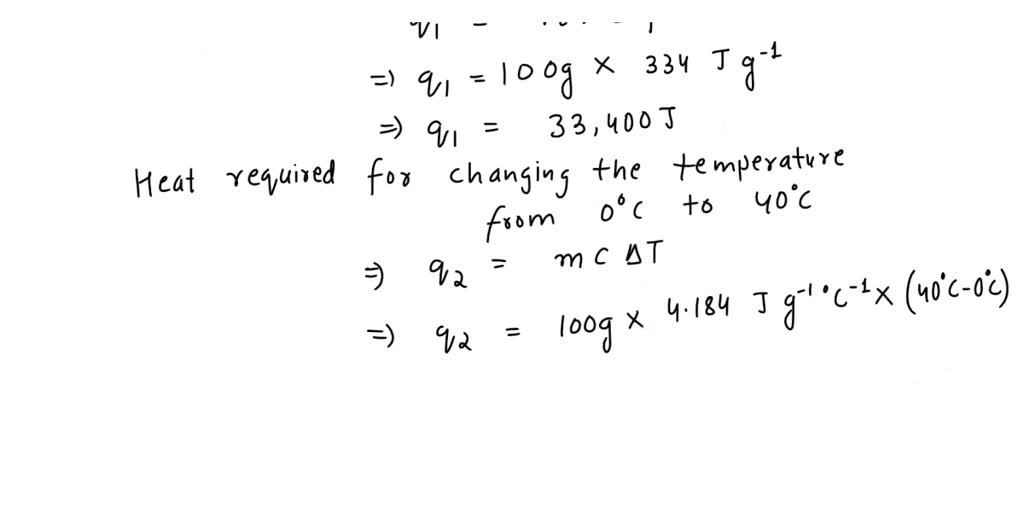 ⇒ q1 = 100g × 334 J g⁻¹
⇒ q1 = 33,400 J
Heat required for changing the temperature
from 0°C to 40°C
⇒ q2 = m C ΔT
⇒ q2 = 100g × 4.184 J g⁻¹ °C⁻¹ × (40°C-0°C)